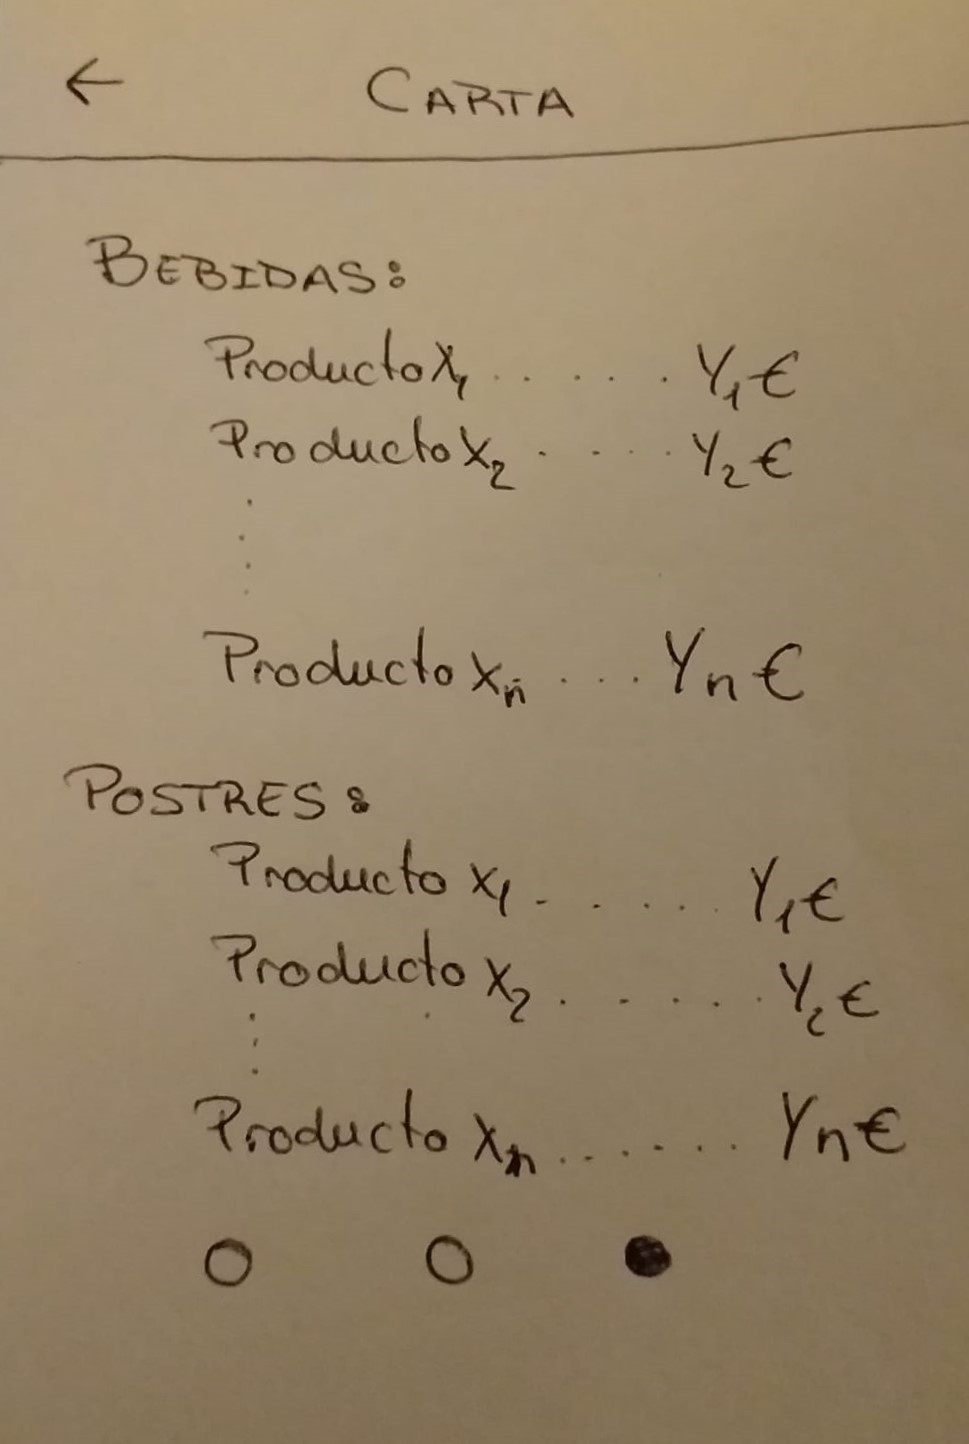 ← CARTA
BEBIDAS:
Producto X₁ ..... Y₁€
Producto X₂ ..... Y₂€
Producto Xₙ .... Yₙ€
POSTRES:
Producto X₁ ...... Y₁€
Producto X₂ ...... Y₂€
Producto Xₙ ...... Yₙ€